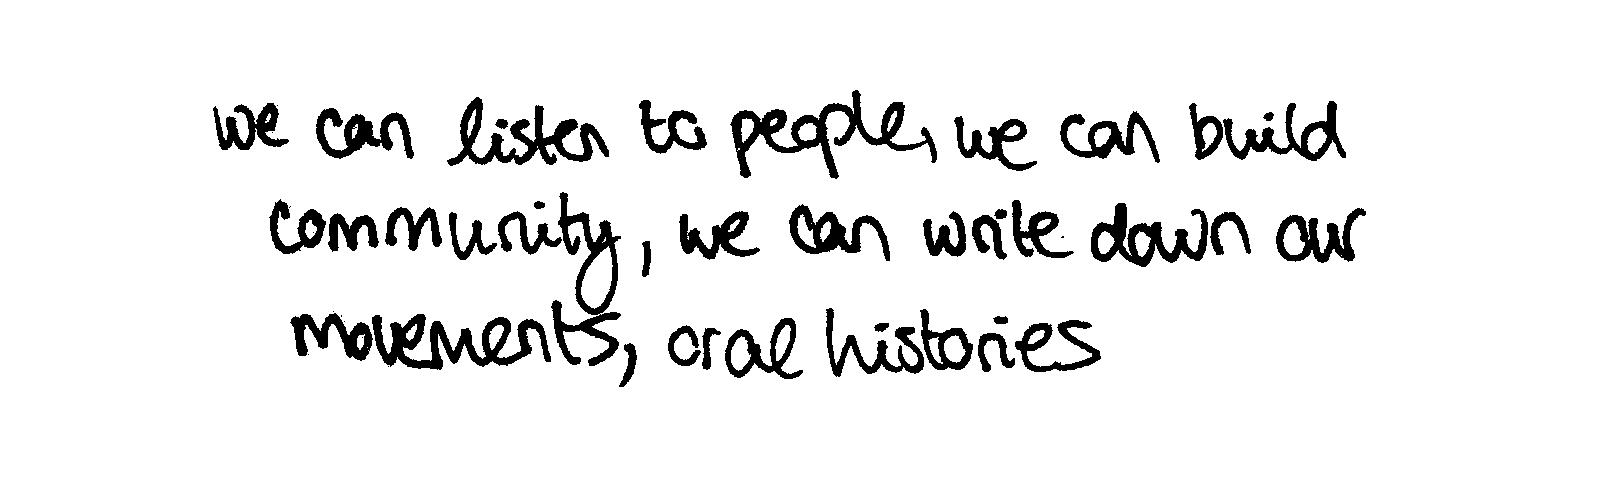 we can listen to people, we can build
community, we can write down our
movements, oral histories